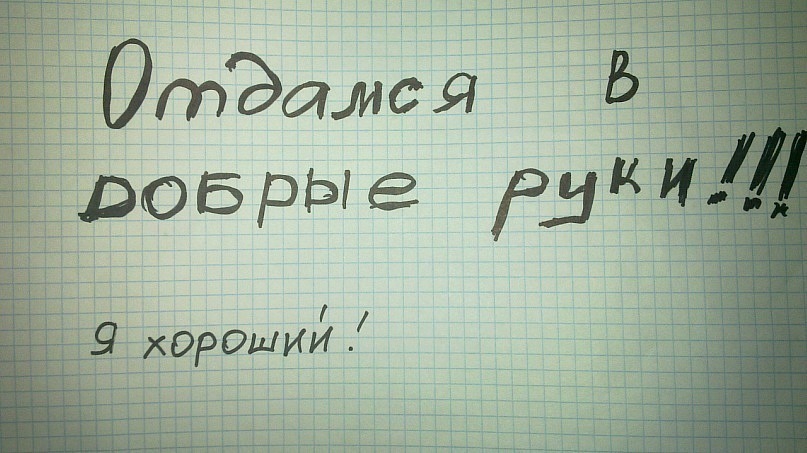 Отдамся в
добрые руки!!!
я хороший!